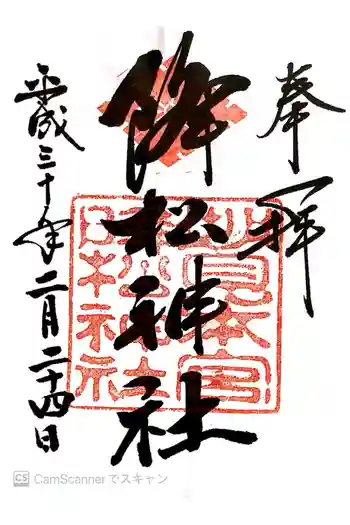 奉拝
妙見本宮
降松神社
降松神社
平成三十年二月二十四日
CS CamScannerでスキャン